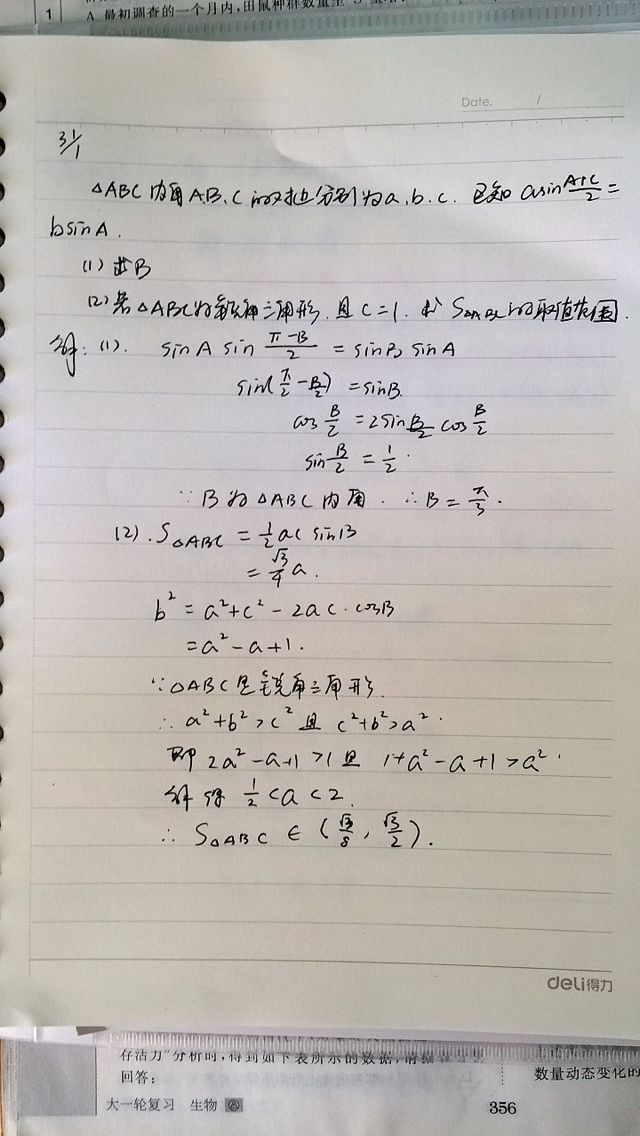 1
A. 最初调查的一个月内,田鼠种群数量呈"S"型增
Date. /
31/1
△ABC内角A.B.C的对边分别为a.b.c. 已知 asin(A+C)/2 =
bsinA.
(1) 求B
(2) 若△ABC为锐角三角形,且c=1. 求S△ABC的取值范围.
解: (1). sinA sin (π-B)/2 = sinB sinA
sin(π/2 - B/2) = sinB.
cos B/2 = 2sin B/2 cos B/2
sin B/2 = 1/2.
∵ B为△ABC内角. ∴B = π/3.
(2). S△ABC = 1/2 ac sinB
= √3/4 a.
b² = a²+c²-2ac·cosB
= a²-a+1.
∵△ABC是锐角三角形.
∴ a²+b²>c² 且 c²+b²>a².
即 2a²-a+1>1 且 1+a²-a+1>a².
解得 1/2<a<2.
∴ S△ABC ∈ (√3/8, √3/2).
deli得力
存活力"分析时,得到如下表所示的数据,请据
回答:
数量动态变化的
大一轮复习 生物 A
356